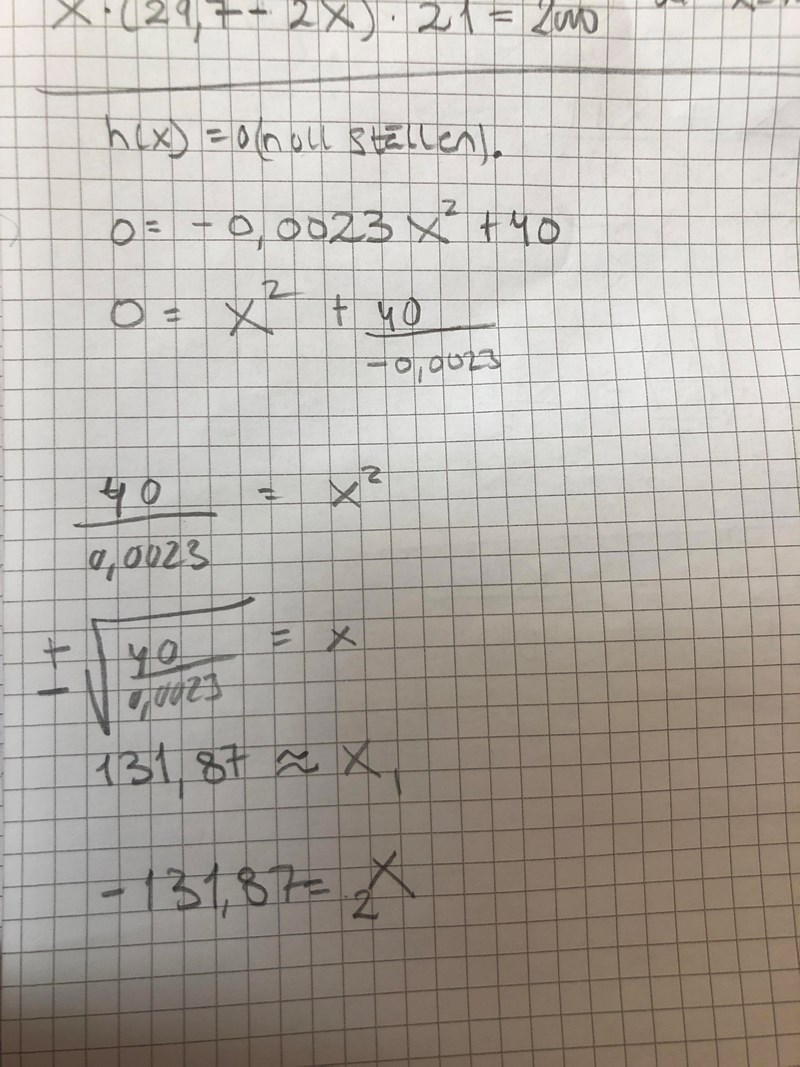 x · (29,7 - 2x) · 21 = 2000
h(x) = 0 (noll ställen).
0 = - 0,0023 x² + 40
0 = x² + 40 / -0,0023
40 / 0,0023 = x²
± √(40 / 0,0023) = x
131,87 ≈ x₁
-131,87 = ₂x